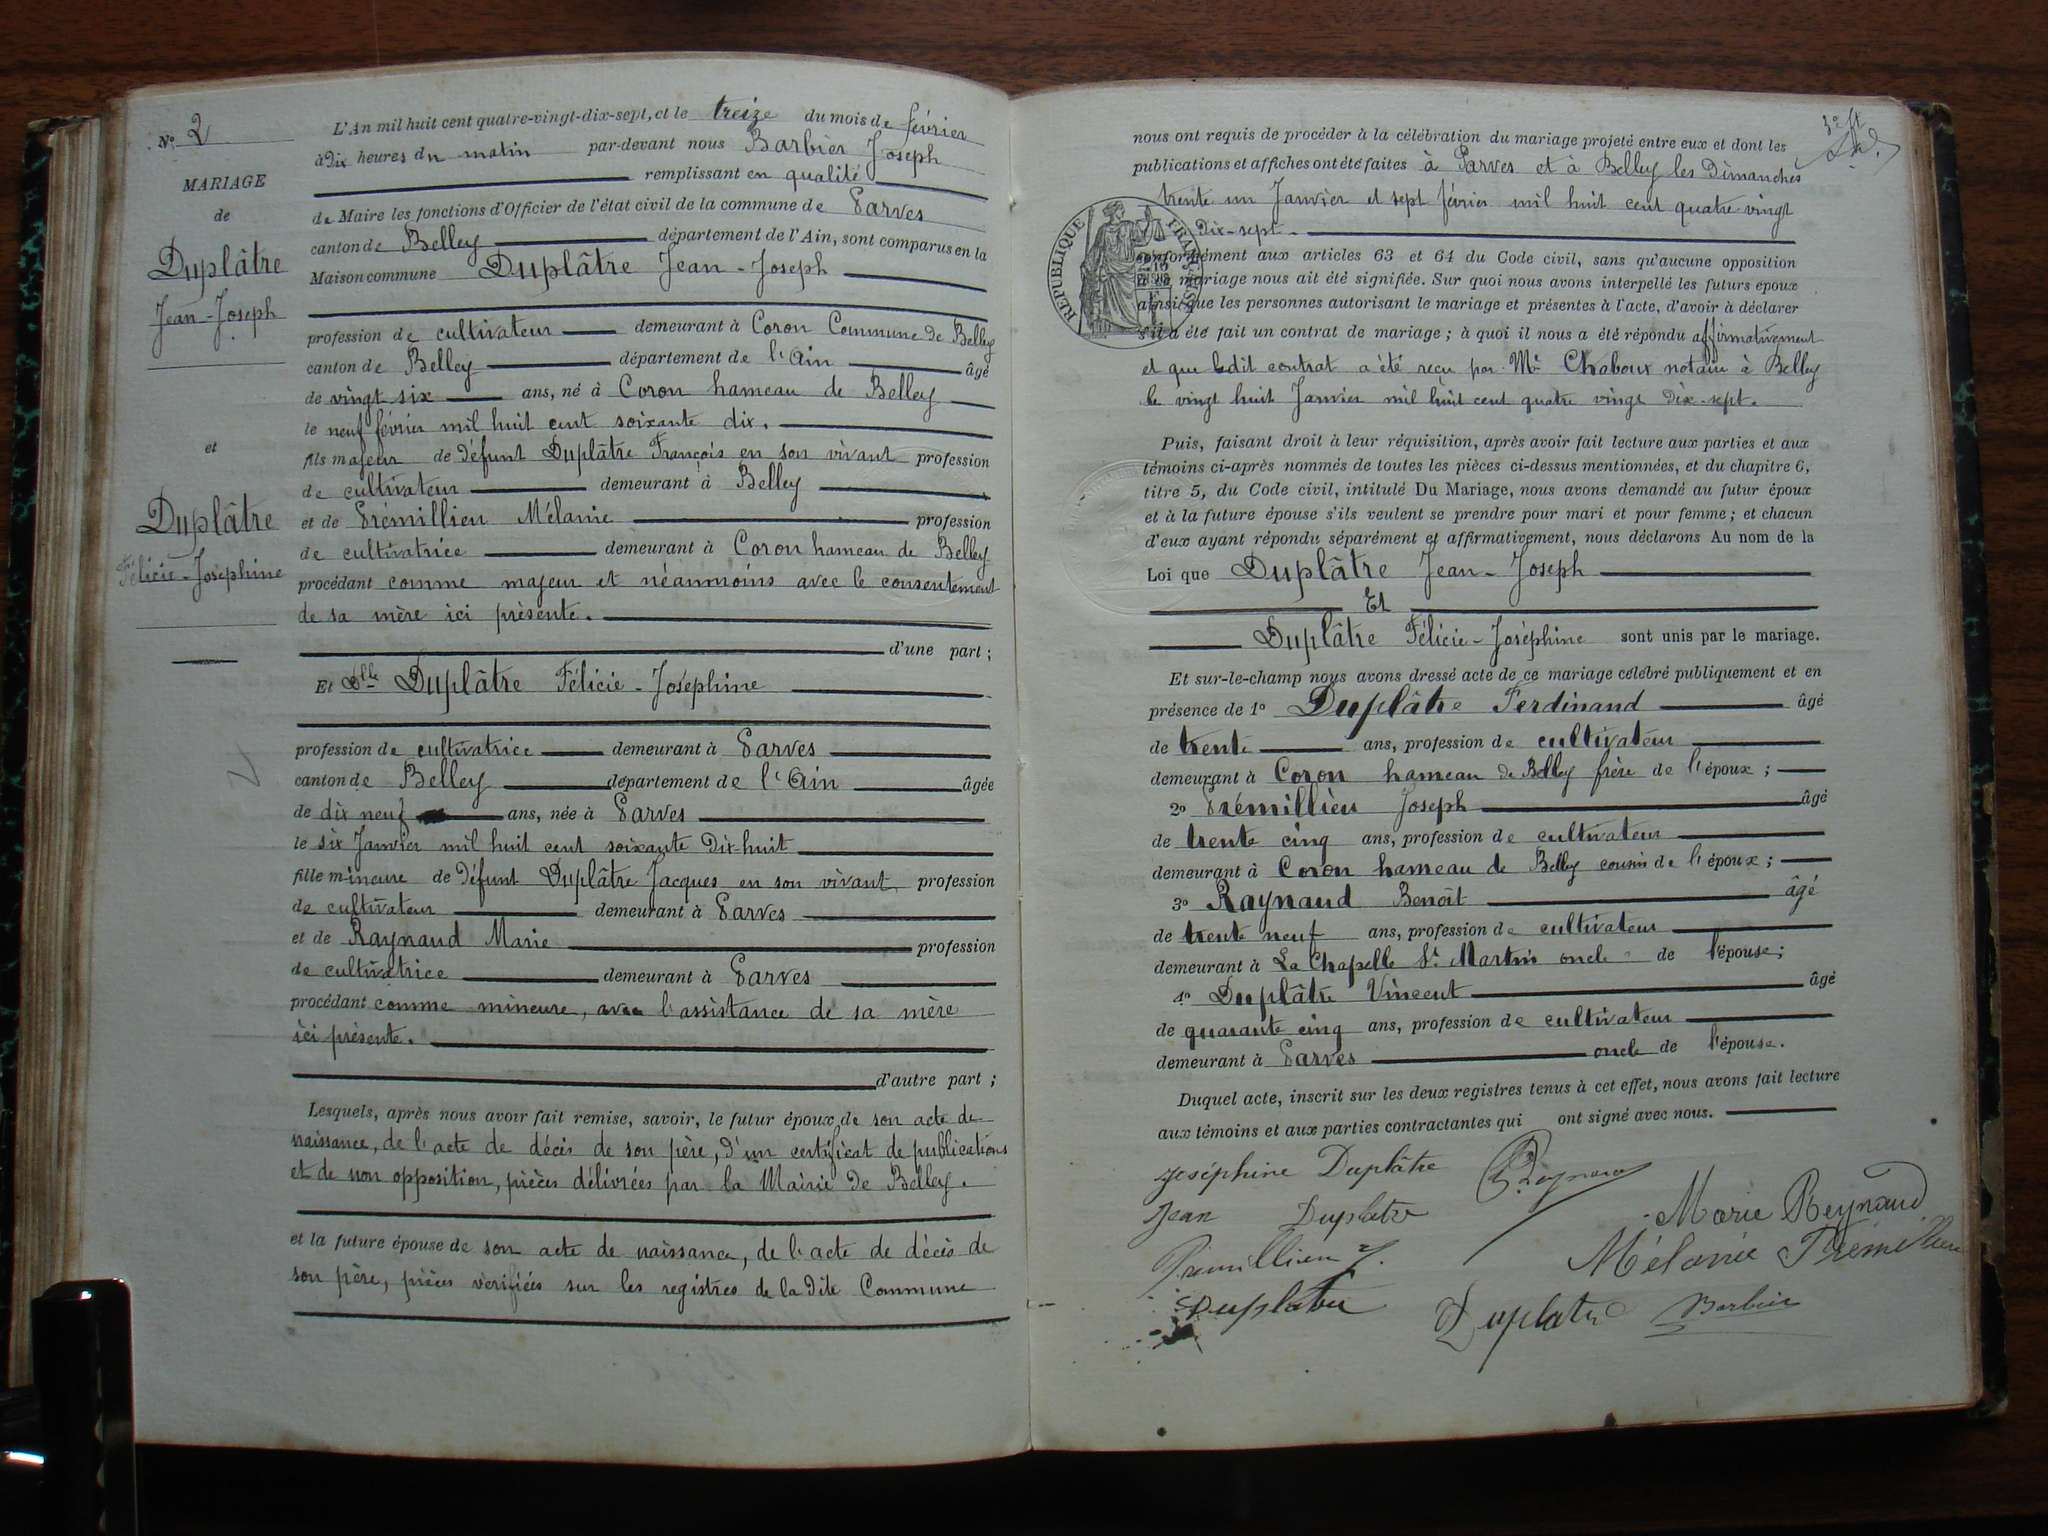 N° 2
MARIAGE
de
Duplâtre
Jean-Joseph
et
Duplâtre
Félicie-Joséphine
L'An mil huit cent quatre-vingt-dix-sept, et le treize du mois de février
à Dix heures du matin par-devant nous Barbier Joseph
remplissant en qualité
de Maire les fonctions d'Officier de l'état civil de la commune de Parves
canton de Belley département de l'Ain, sont comparus en la
Maison commune Duplâtre Jean-Joseph
profession de cultivateur demeurant à Coron Commune de Belley
canton de Belley département de l'Ain âgé
de vingt six ans, né à Coron hameau de Belley
le neuf février mil huit cent soixante dix.
fils majeur de défunt Duplâtre François en son vivant profession
de cultivateur demeurant à Belley
et de Prémillieu Mélanie profession
de cultivatrice demeurant à Coron hameau de Belley
procédant comme majeur et néanmoins avec le consentement
de sa mère ici présente.
d'une part;
Et Dlle Duplâtre Félicie-Joséphine
profession de cultivatrice demeurant à Parves
canton de Belley département de l'Ain âgée
de dix neuf ans, née à Parves
le six Janvier mil huit cent soixante Dix-huit
fille mineure de défunt Duplâtre Jacques en son vivant profession
de cultivateur demeurant à Parves
et de Raynaud Marie profession
de cultivatrice demeurant à Parves
procédant comme mineure, avec l'assistance de sa mère
ici présente.
d'autre part;
Lesquels, après nous avoir fait remise, savoir, le futur époux de son acte de
naissance, de l'acte de décès de son père, d'un certificat de publications
et de non opposition, pièces délivrées par la Mairie de Belley.
et la future épouse de son acte de naissance, de l'acte de décès de
son père, pièces vérifiées sur les registres de la dite Commune
nous ont requis de procéder à la célébration du mariage projeté entre eux et dont les
publications et affiches ont été faites à Parves et à Belley les Dimanches
trente un Janvier et sept février mil huit cent quatre vingt
Dix-sept.
RÉPUBLIQUE FRANÇAISE
conformément aux articles 63 et 64 du Code civil, sans qu'aucune opposition
à ce mariage nous ait été signifiée. Sur quoi nous avons interpellé les futurs époux
ainsi que les personnes autorisant le mariage et présentes à l'acte, d'avoir à déclarer
s'il a été fait un contrat de mariage; à quoi il nous a été répondu affirmativement
et que ledit contrat a été reçu par Me Chaboux notaire à Belley
le vingt huit Janvier mil huit cent quatre vingt Dix-sept.
Puis, faisant droit à leur réquisition, après avoir fait lecture aux parties et aux
témoins ci-après nommés de toutes les pièces ci-dessus mentionnées, et du chapitre 6,
titre 5, du Code civil, intitulé Du Mariage, nous avons demandé au futur époux
et à la future épouse s'ils veulent se prendre pour mari et pour femme; et chacun
d'eux ayant répondu séparément et affirmativement, nous déclarons Au nom de la
Loi que Duplâtre Jean-Joseph
Et
Duplâtre Félicie-Joséphine sont unis par le mariage.
Et sur-le-champ nous avons dressé acte de ce mariage célébré publiquement et en
présence de 1° Duplâtre Ferdinand âgé
de trente ans, profession de cultivateur
demeurant à Coron hameau de Belley frère de l'époux;
2° Prémillieu Joseph âgé
de trente cinq ans, profession de cultivateur
demeurant à Coron hameau de Belley cousin de l'époux;
3° Raynaud Benoît âgé
de trente neuf ans, profession de cultivateur
demeurant à La Chapelle St Martin oncle de l'épouse;
4° Duplâtre Vincent âgé
de quarante cinq ans, profession de cultivateur
demeurant à Parves oncle de l'épouse.
Duquel acte, inscrit sur les deux registres tenus à cet effet, nous avons fait lecture
aux témoins et aux parties contractantes qui ont signé avec nous.
Joséphine Duplâtre
Jean Duplatre
Marie Reynaud
Prémillieu J.
Mélanie Prémillieu
Duplatre
Duplatre
Barbier